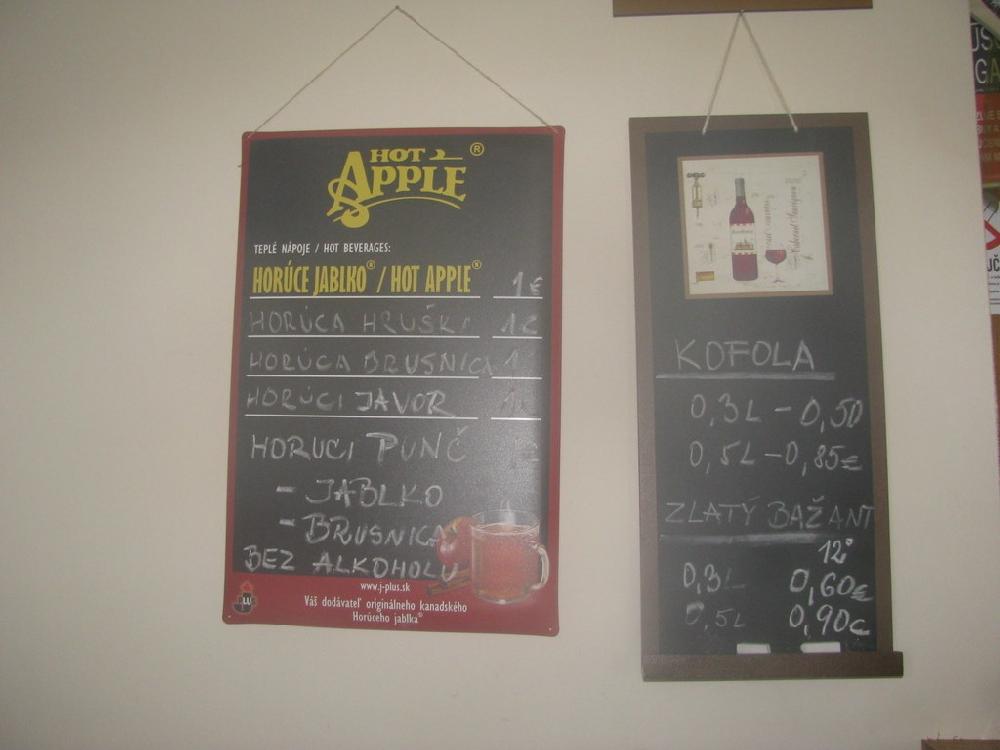 HOT
APPLE ®
TEPLÉ NÁPOJE / HOT BEVERAGES:
HORÚCE JABLKO® / HOT APPLE® 1€
HORÚCA HRUŠKA 1€
HORÚCA BRUSNICA 1
HORÚCI JAVOR
HORUCI PUNČ
- JABLKO
- BRUSNICA
BEZ ALKOHOLU
www.j-plus.sk
Váš dodávateľ originálneho kanadského
Horúceho jablka®
KOFOLA
0,3L - 0,50
0,5L - 0,85€
ZLATÝ BAŽANT
12°
0,3L 0,60€
0,5L 0,90€